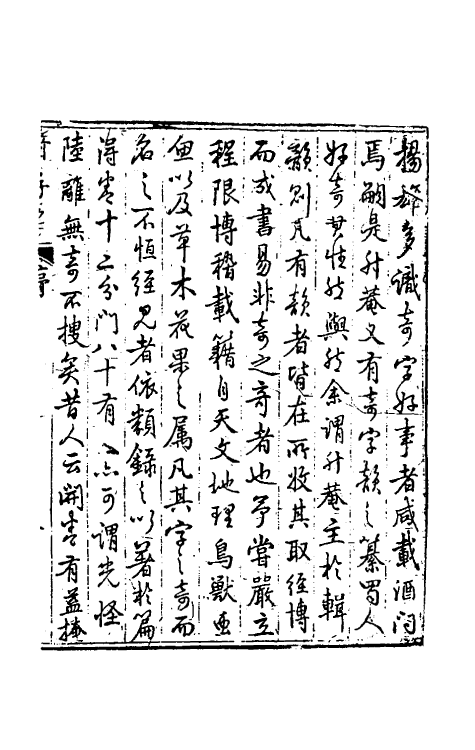 揚雄多識奇字好事者咸載酒問
焉嗣是升菴又有奇字韻之纂蜀人
好奇其性然與然余謂升菴主於輯
韻則凡有韻者皆在所收其取徑博
而成書易非奇之奇者也予嘗嚴立
程限博稽載籍自天文地理鳥獸虫
魚以及草木花果之属凡其字之奇而
名之不恒經見者依類錄之以著於篇
得卷十二分門八十有八亦可謂光怪
陸離無奇不搜矣昔人云開卷有益掩